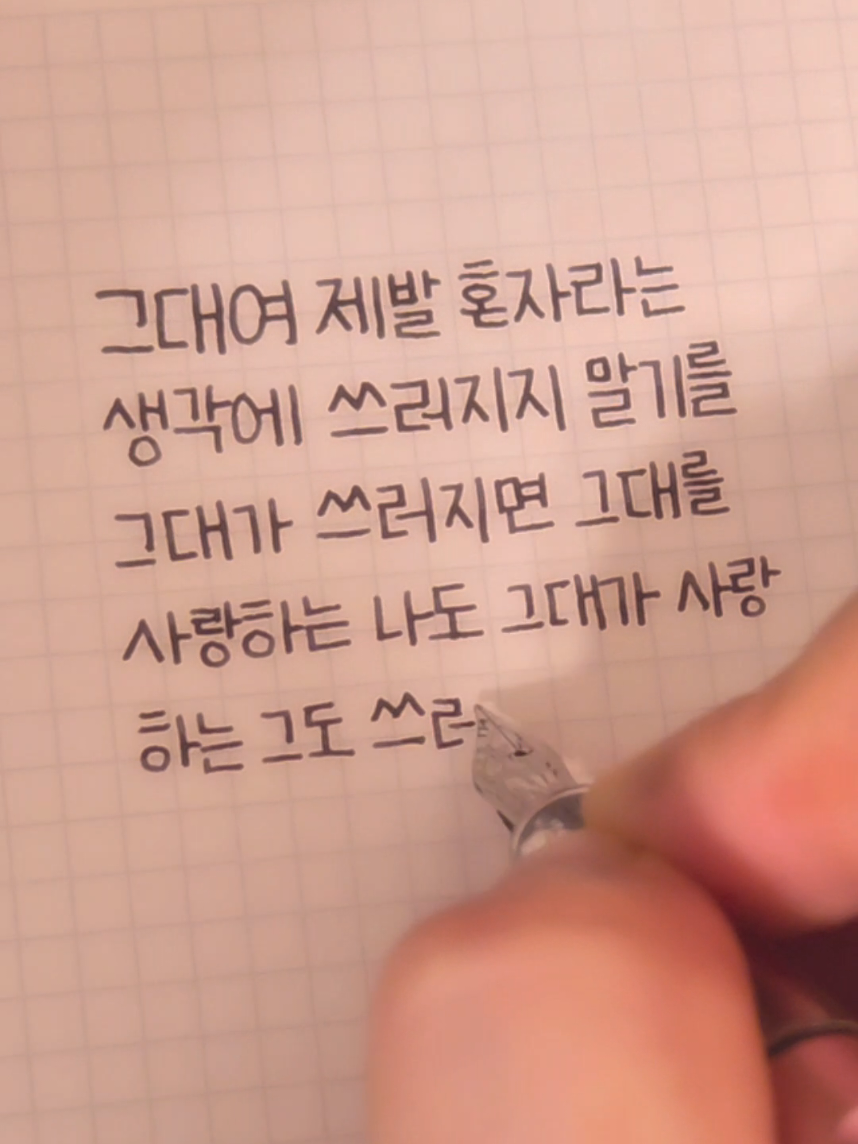 그대여 제발 혼자라는
생각에 쓰러지지 말기를
그대가 쓰러지면 그대를
사랑하는 나도 그대가 사랑
하는 그도 쓰러